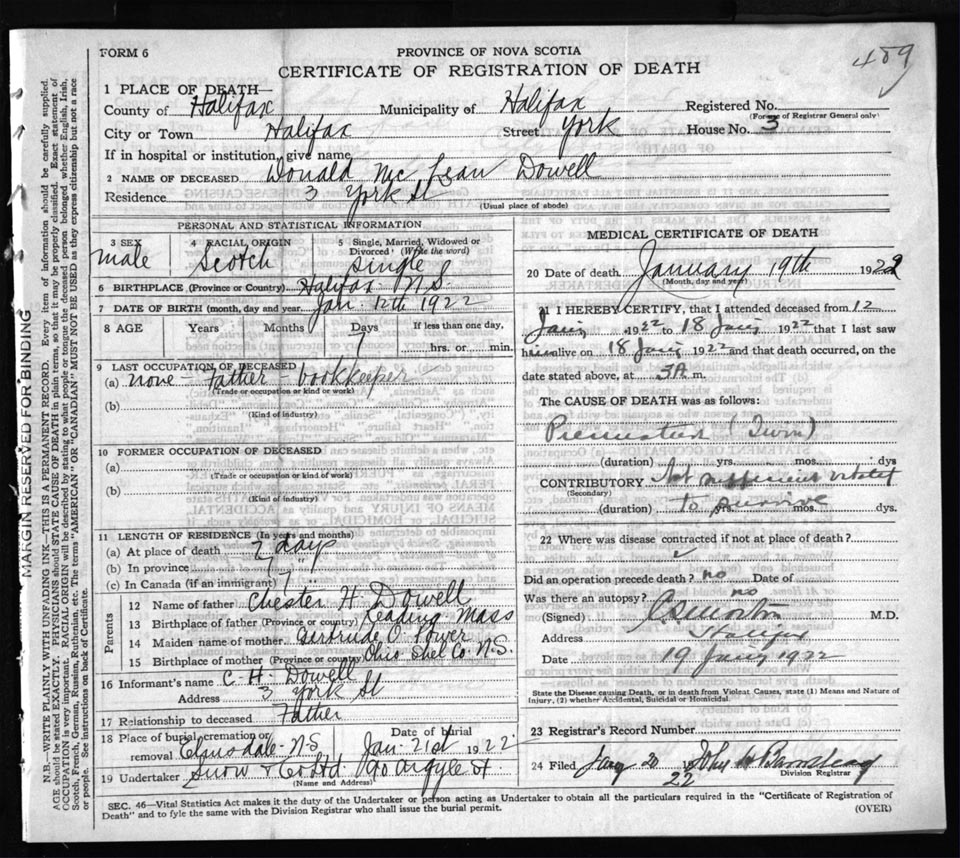 FORM 6
PROVINCE OF NOVA SCOTIA
489
CERTIFICATE OF REGISTRATION OF DEATH
1 PLACE OF DEATH—
County of Halifax Municipality of Halifax Registered No.
(For use of Registrar General only)
City or Town Halifax Street York House No. 3
If in hospital or institution, give name
2 NAME OF DECEASED Donald McLean Dowell
Residence 3 York St
(Usual place of abode)
PERSONAL AND STATISTICAL INFORMATION
3 SEX 4 RACIAL ORIGIN 5 Single, Married, Widowed or Divorced (Write the word)
male Scotch single
6 BIRTHPLACE (Province or Country) Halifax N.S.
7 DATE OF BIRTH (month, day and year) Jan. 12th 1922
8 AGE Years Months Days If less than one day,
7 hrs. or min.
9 LAST OCCUPATION OF DECEASED
(a) none - Father - bookkeeper
(Trade or occupation or kind or work)
(b)
(Kind of industry)
10 FORMER OCCUPATION OF DECEASED
(a)
(Trade or occupation or kind or work)
(b)
(Kind of industry)
11 LENGTH OF RESIDENCE (In years and months)
(a) At place of death 7 days
(b) In province 7 "
(c) In Canada (if an immigrant) 7 "
Parents
12 Name of father Chester H. Dowell
13 Birthplace of father (Province or country) Reading Mass
14 Maiden name of mother Gertrude O. Power
15 Birthplace of mother (Province or country) Ohio Shel Co. N.S.
16 Informant's name C. H. Dowell
Address 3 York St
17 Relationship to deceased Father
18 Place of burial, cremation or removal Elmsdale N.S. Date of burial Jan. 21st 1922
19 Undertaker Snow & Co. Ltd 90 Argyle St.
(Name and Address)
MEDICAL CERTIFICATE OF DEATH
20 Date of death January 19th 1922
(Month, day and year)
21 I HEREBY CERTIFY, that I attended deceased from 12
Jany 1922 to 18 Jany 1922 that I last saw
him alive on 18 Jany 1922 and that death occurred, on the
date stated above, at 3A m.
The CAUSE OF DEATH was as follows:
Premature (Twin)
(duration) yrs. mos. dys
CONTRIBUTORY Not sufficient vitality
(Secondary)
(duration) to survive yrs. mos. dys.
22 Where was disease contracted if not at place of death?
Did an operation precede death? no Date of
Was there an autopsy? no
(Signed) M.D.
Address Halifax
Date 19 Jany 1922
State the Disease causing Death, or in death from Violent Causes, state (1) Means and Nature of
Injury, (2) whether Accidental, Suicidal or Homicidal.
23 Registrar's Record Number
24 Filed Jany 20 22 John
Division Registrar
SEC. 46—Vital Statistics Act makes it the duty of the Undertaker or person acting as Undertaker to obtain all the particulars required in the "Certificate of Registration of
Death" and to fyle the same with the Division Registrar who shall issue the burial permit.
(OVER)
MARGIN RESERVED FOR BINDING
N.B.—WRITE PLAINLY WITH UNFADING INK—THIS IS A PERMANENT RECORD. Every item of information should be carefully supplied.
AGE should be stated EXACTLY. PHYSICIANS should STATE CAUSE OF DEATH in plain terms, so that it may be properly classified. Exact statement of
OCCUPATION is very important. RACIAL ORIGIN will be described by stating to what people or tongue the deceased person belonged whether English, Irish,
Scotch, French, German, Russian, Ruthenian, etc. The terms "AMERICAN" OR "CANADIAN" MUST NOT BE USED as they express citizenship but not a race
or people. See instructions on back of Certificate.